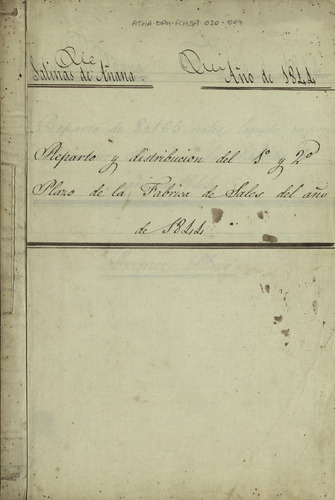 ATHA-DAH-FCH.SA-020-004
Salinas de Añana. Año de 1844
Reparto y distribucion del 1º y 2º
Plazo de la Fabrica de Sales del año
de 1844